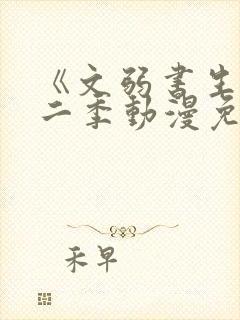 《文弱書生
二季動漫免
禾早